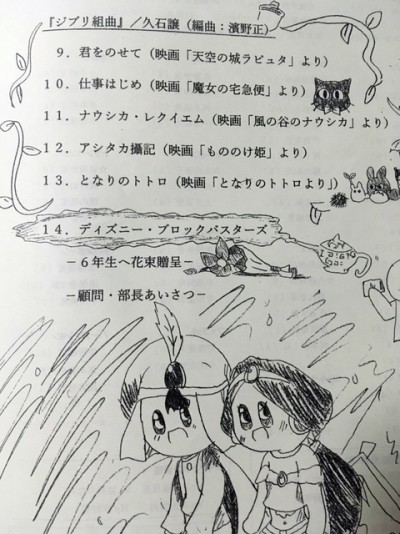 『ジブリ組曲』／久石譲（編曲：濱野正）
９．君をのせて（映画「天空の城ラピュタ」より）
１０．仕事はじめ（映画「魔女の宅急便」より）
１１．ナウシカ・レクイエム（映画「風の谷のナウシカ」より）
１２．アシタカ攝記（映画「もののけ姫」より）
１３．となりのトトロ（映画「となりのトトロより」）
１４．ディズニー・ブロックバスターズ
－６年生へ花束贈呈－
－顧問・部長あいさつ－